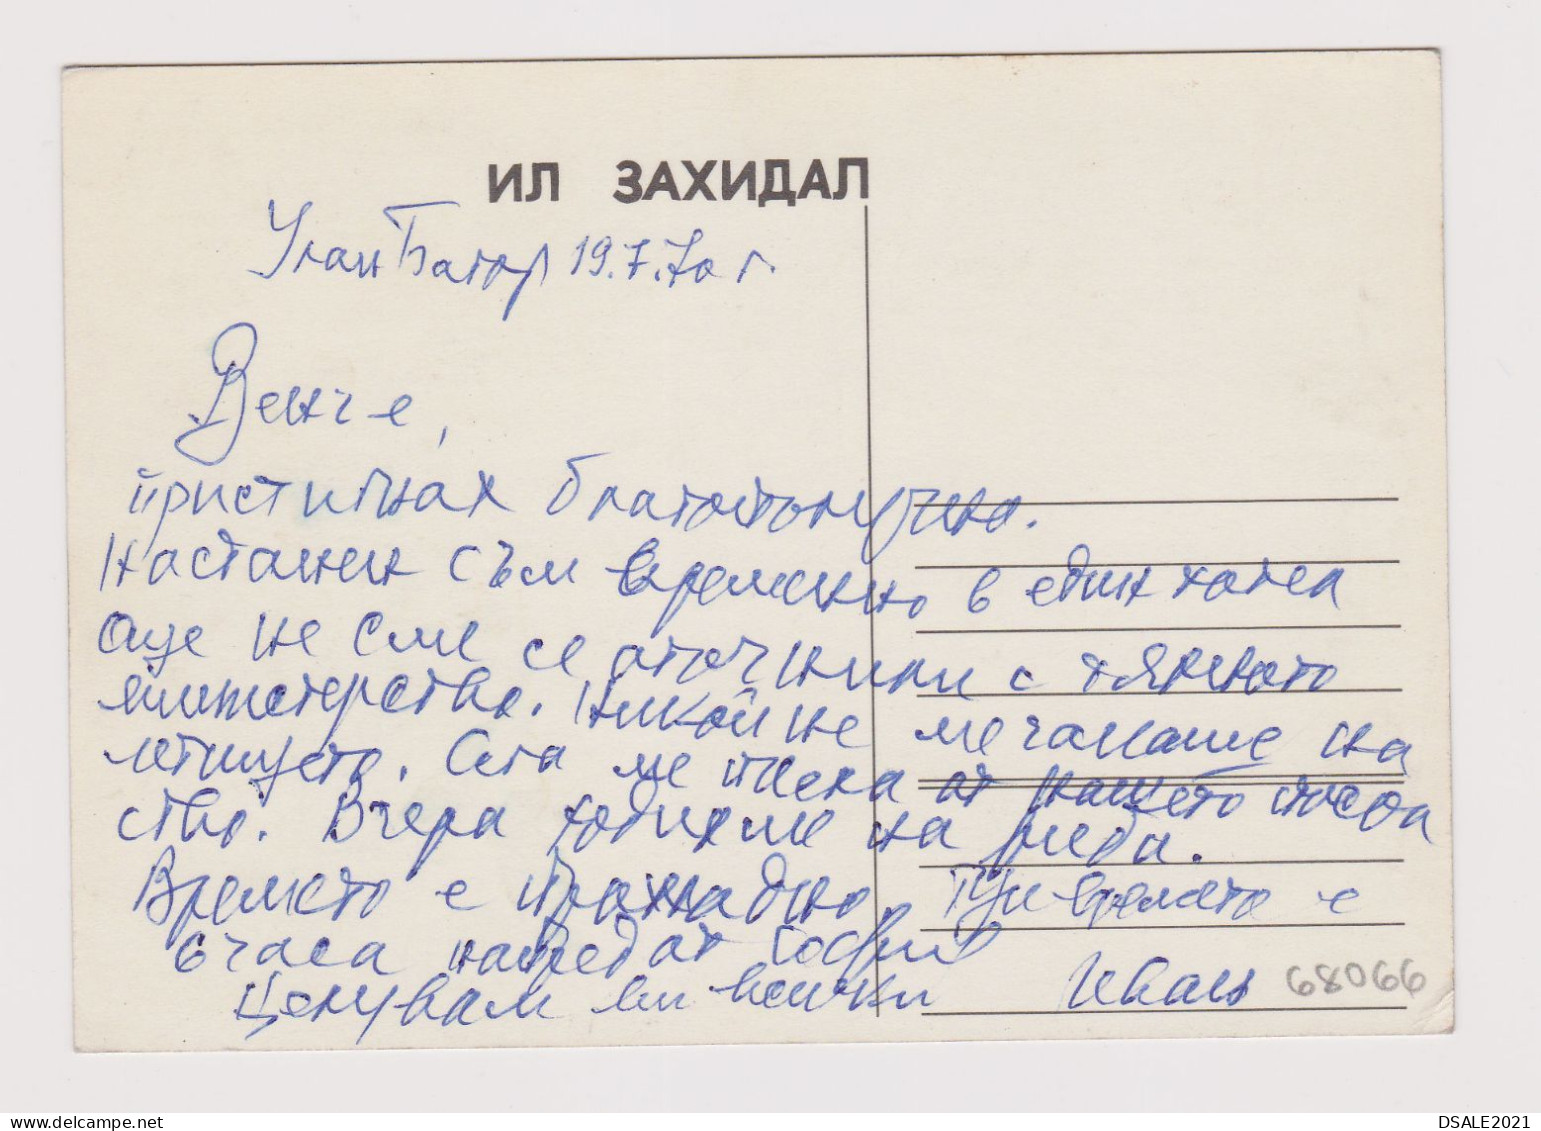 ИЛ ЗАХИДАЛ
Улан Батор 19.7.70 г.
Венче,
пристигнах благополучно.
Настанен съм временно в един хотел
още не сме се отчинили с тяхното
министерство. Никой не ме чакаше на
летището. Сега ме от нашето посол
ство. Вчера ходихме на риба.
Времето е прохладно. Тук времето е
6 часа напред от София
Целувам ви всички Иван
68066
DSALE2021